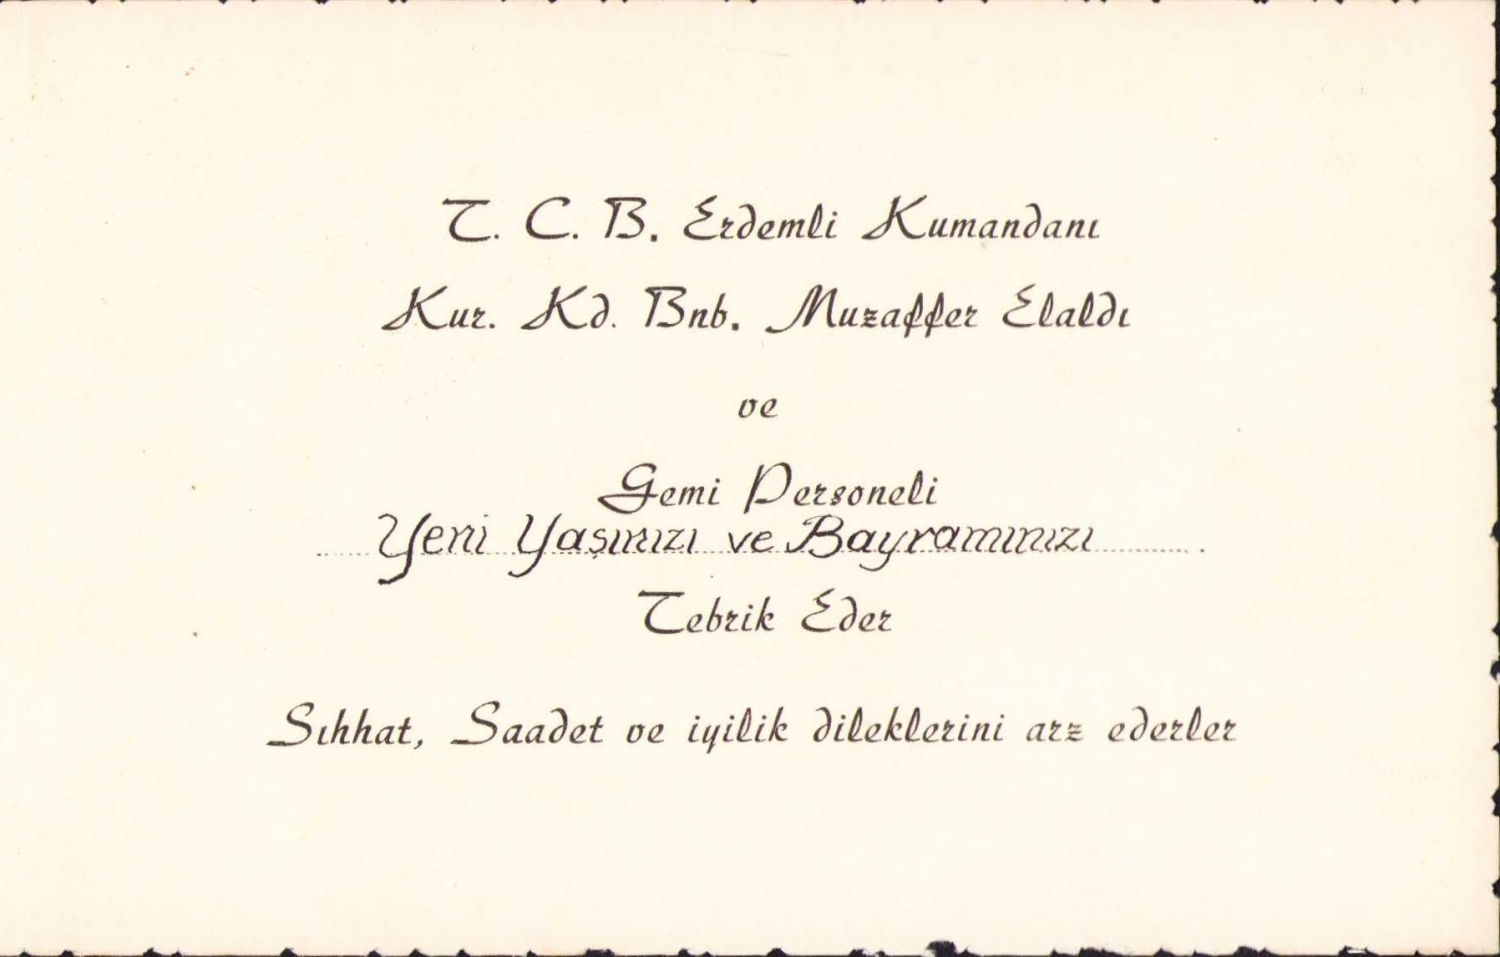 T. C. B. Erdemli Kumandanı
Kur. Kd. Bnb. Muzaffer Elaldı
ve
Gemi Personeli
Yeni Yaşınızı ve Bayramınızı
Tebrik Eder
Sıhhat, Saadet ve iyilik dileklerini arz ederler